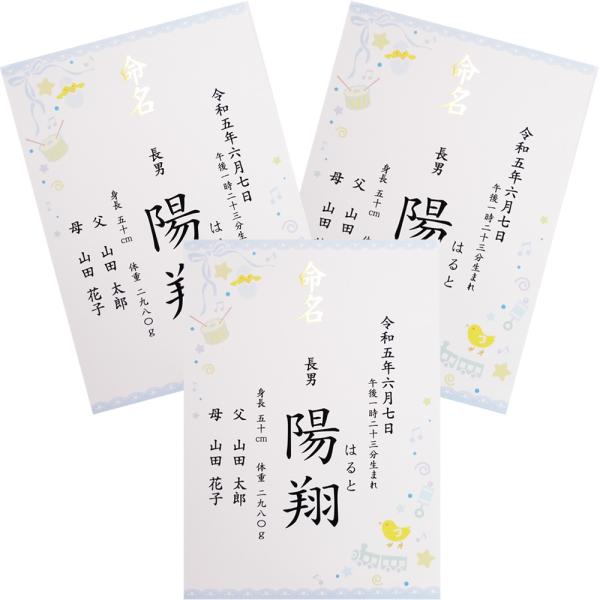 命名
令和五年六月七日
午後一時二十三分生まれ
長男
はると
陽翔
身長 五十cm 体重 二九八〇g
父 山田 太郎
母 山田 花子
命名
令和五年六月七日
午後一時二十三分生まれ
長男
は
陽翔
身長 五十cm 体重 二九八〇g
父 山田 太郎
母 山田 花子
命名
令和五年六月七日
午後一時二十三分生まれ
長男
はると
陽
身長 五十cm 体
父 山田
母 山